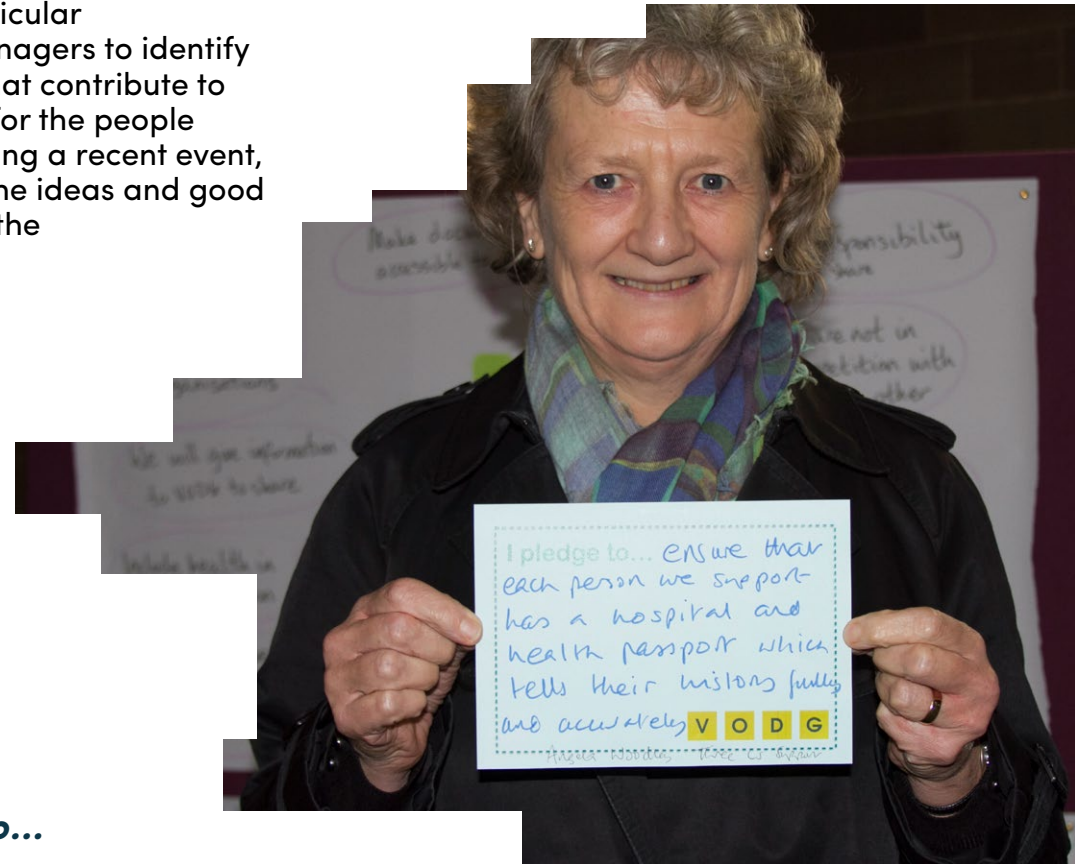 icular
nagers to identify
at contribute to
for the people
ing a recent event,
ne ideas and good
the
Make
accessible
sponsibility
share
are not in
etition with
other
ganisations
We will give information
to VODG to share
Include health in
in
I pledge to... ensure that
each person we support
has a hospital and
health passport which
tells their history fully
and accurately VODG
Angela
o...